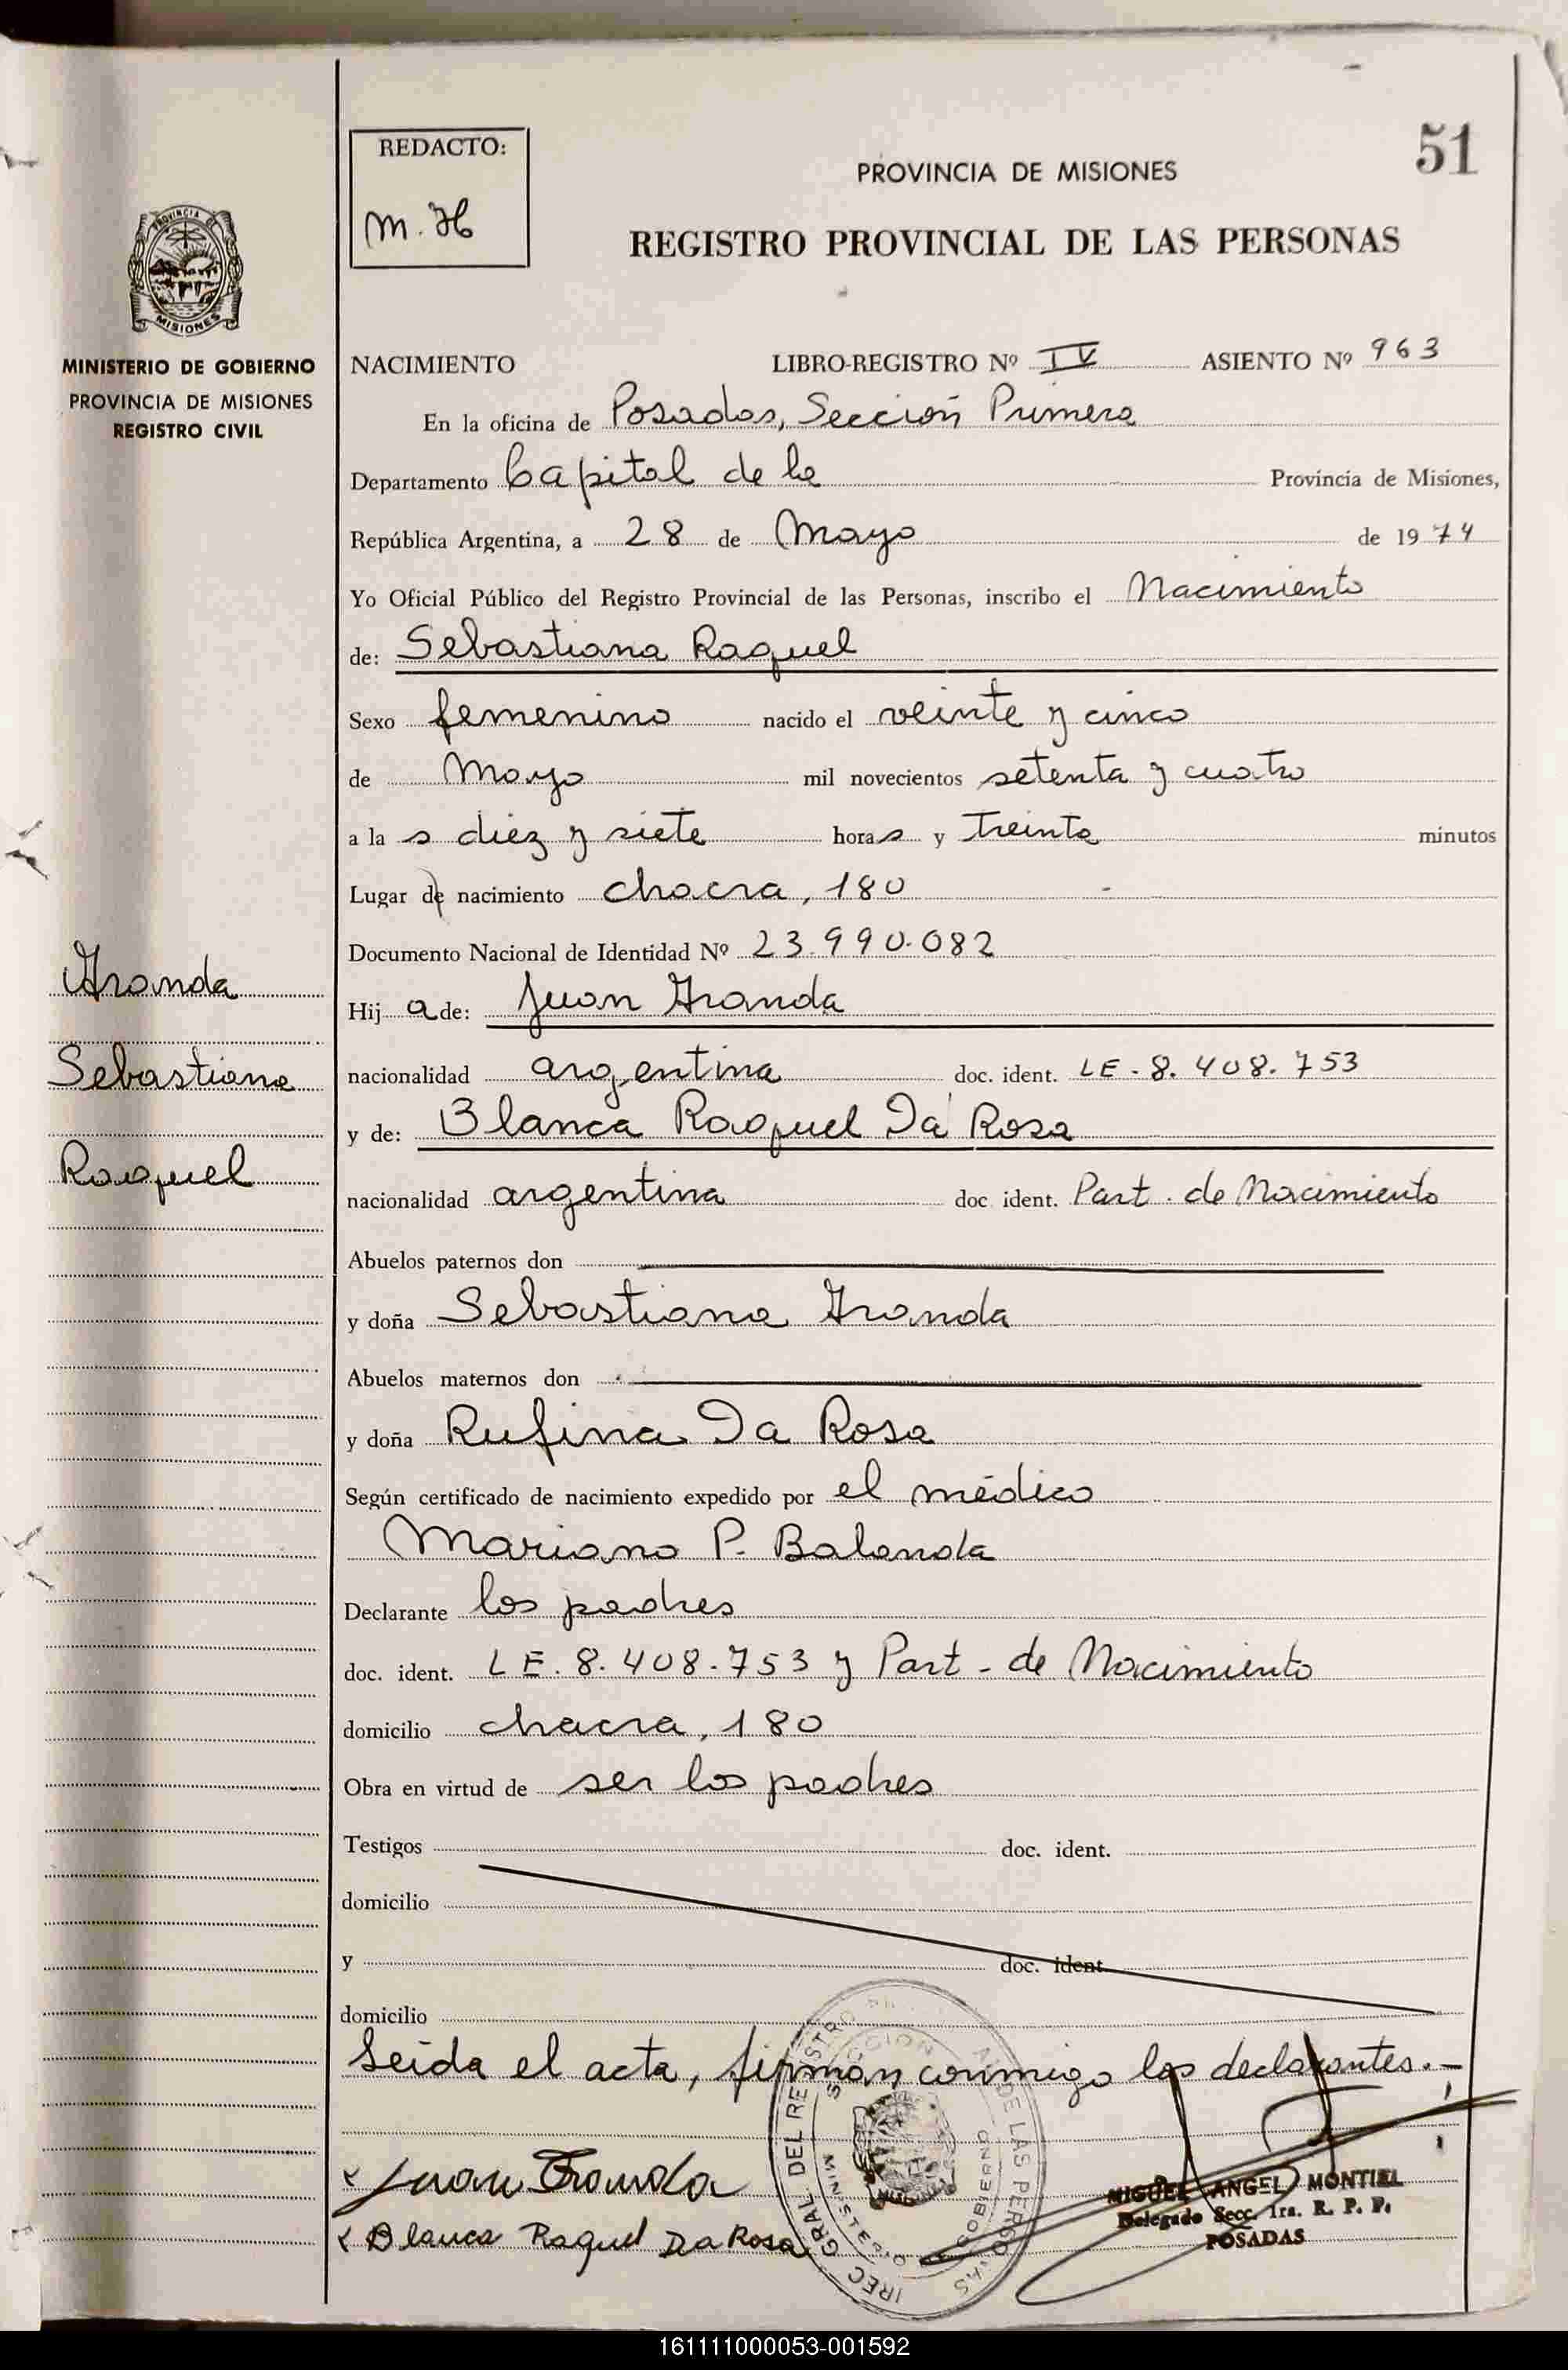 51
REDACTO:
M. H
PROVINCIA DE MISIONES
REGISTRO PROVINCIAL DE LAS PERSONAS
PROVINCIA DE
MISIONES
MINISTERIO DE GOBIERNO
PROVINCIA DE MISIONES
REGISTRO CIVIL
NACIMIENTO LIBRO-REGISTRO Nº IV ASIENTO Nº 963
En la oficina de Posadas, Sección Primera
Departamento Capital de la Provincia de Misiones,
República Argentina, a 28 de Mayo de 1974
Yo Oficial Público del Registro Provincial de las Personas, inscribo el Nacimiento
de: Sebastiana Raquel
Sexo femenino nacido el veinte y cinco
de Mayo mil novecientos setenta y cuatro
a la s diez y siete horas y treinta minutos
Lugar de nacimiento chacra, 180
Documento Nacional de Identidad Nº 23.990.082
Hij a de: Juan
nacionalidad argentina doc. ident. LE-8.408.753
y de: Blanca Raquel Da Rosa
nacionalidad argentina doc. ident. Part. de Nacimiento
Abuelos paternos don
y doña Sebastiana
Abuelos maternos don
y doña Rufina Da Rosa
Según certificado de nacimiento expedido por el médico
Mariano P. Balanda
Declarante los padres
doc. ident. LE.8.408.753 y Part - de Nacimiento
domicilio chacra, 180
Obra en virtud de ser los padres
Testigos doc. ident.
domicilio
y doc. ident.
domicilio
Leída el acta, firman conmigo los declarantes.-
Juan
Blanca Raquel Da Rosa
MIGUEL ANGEL MONTIEL
Delegado Secc. 1ra. R. P. P.
POSADAS
Sebastiana
Raquel
161111000053-001592